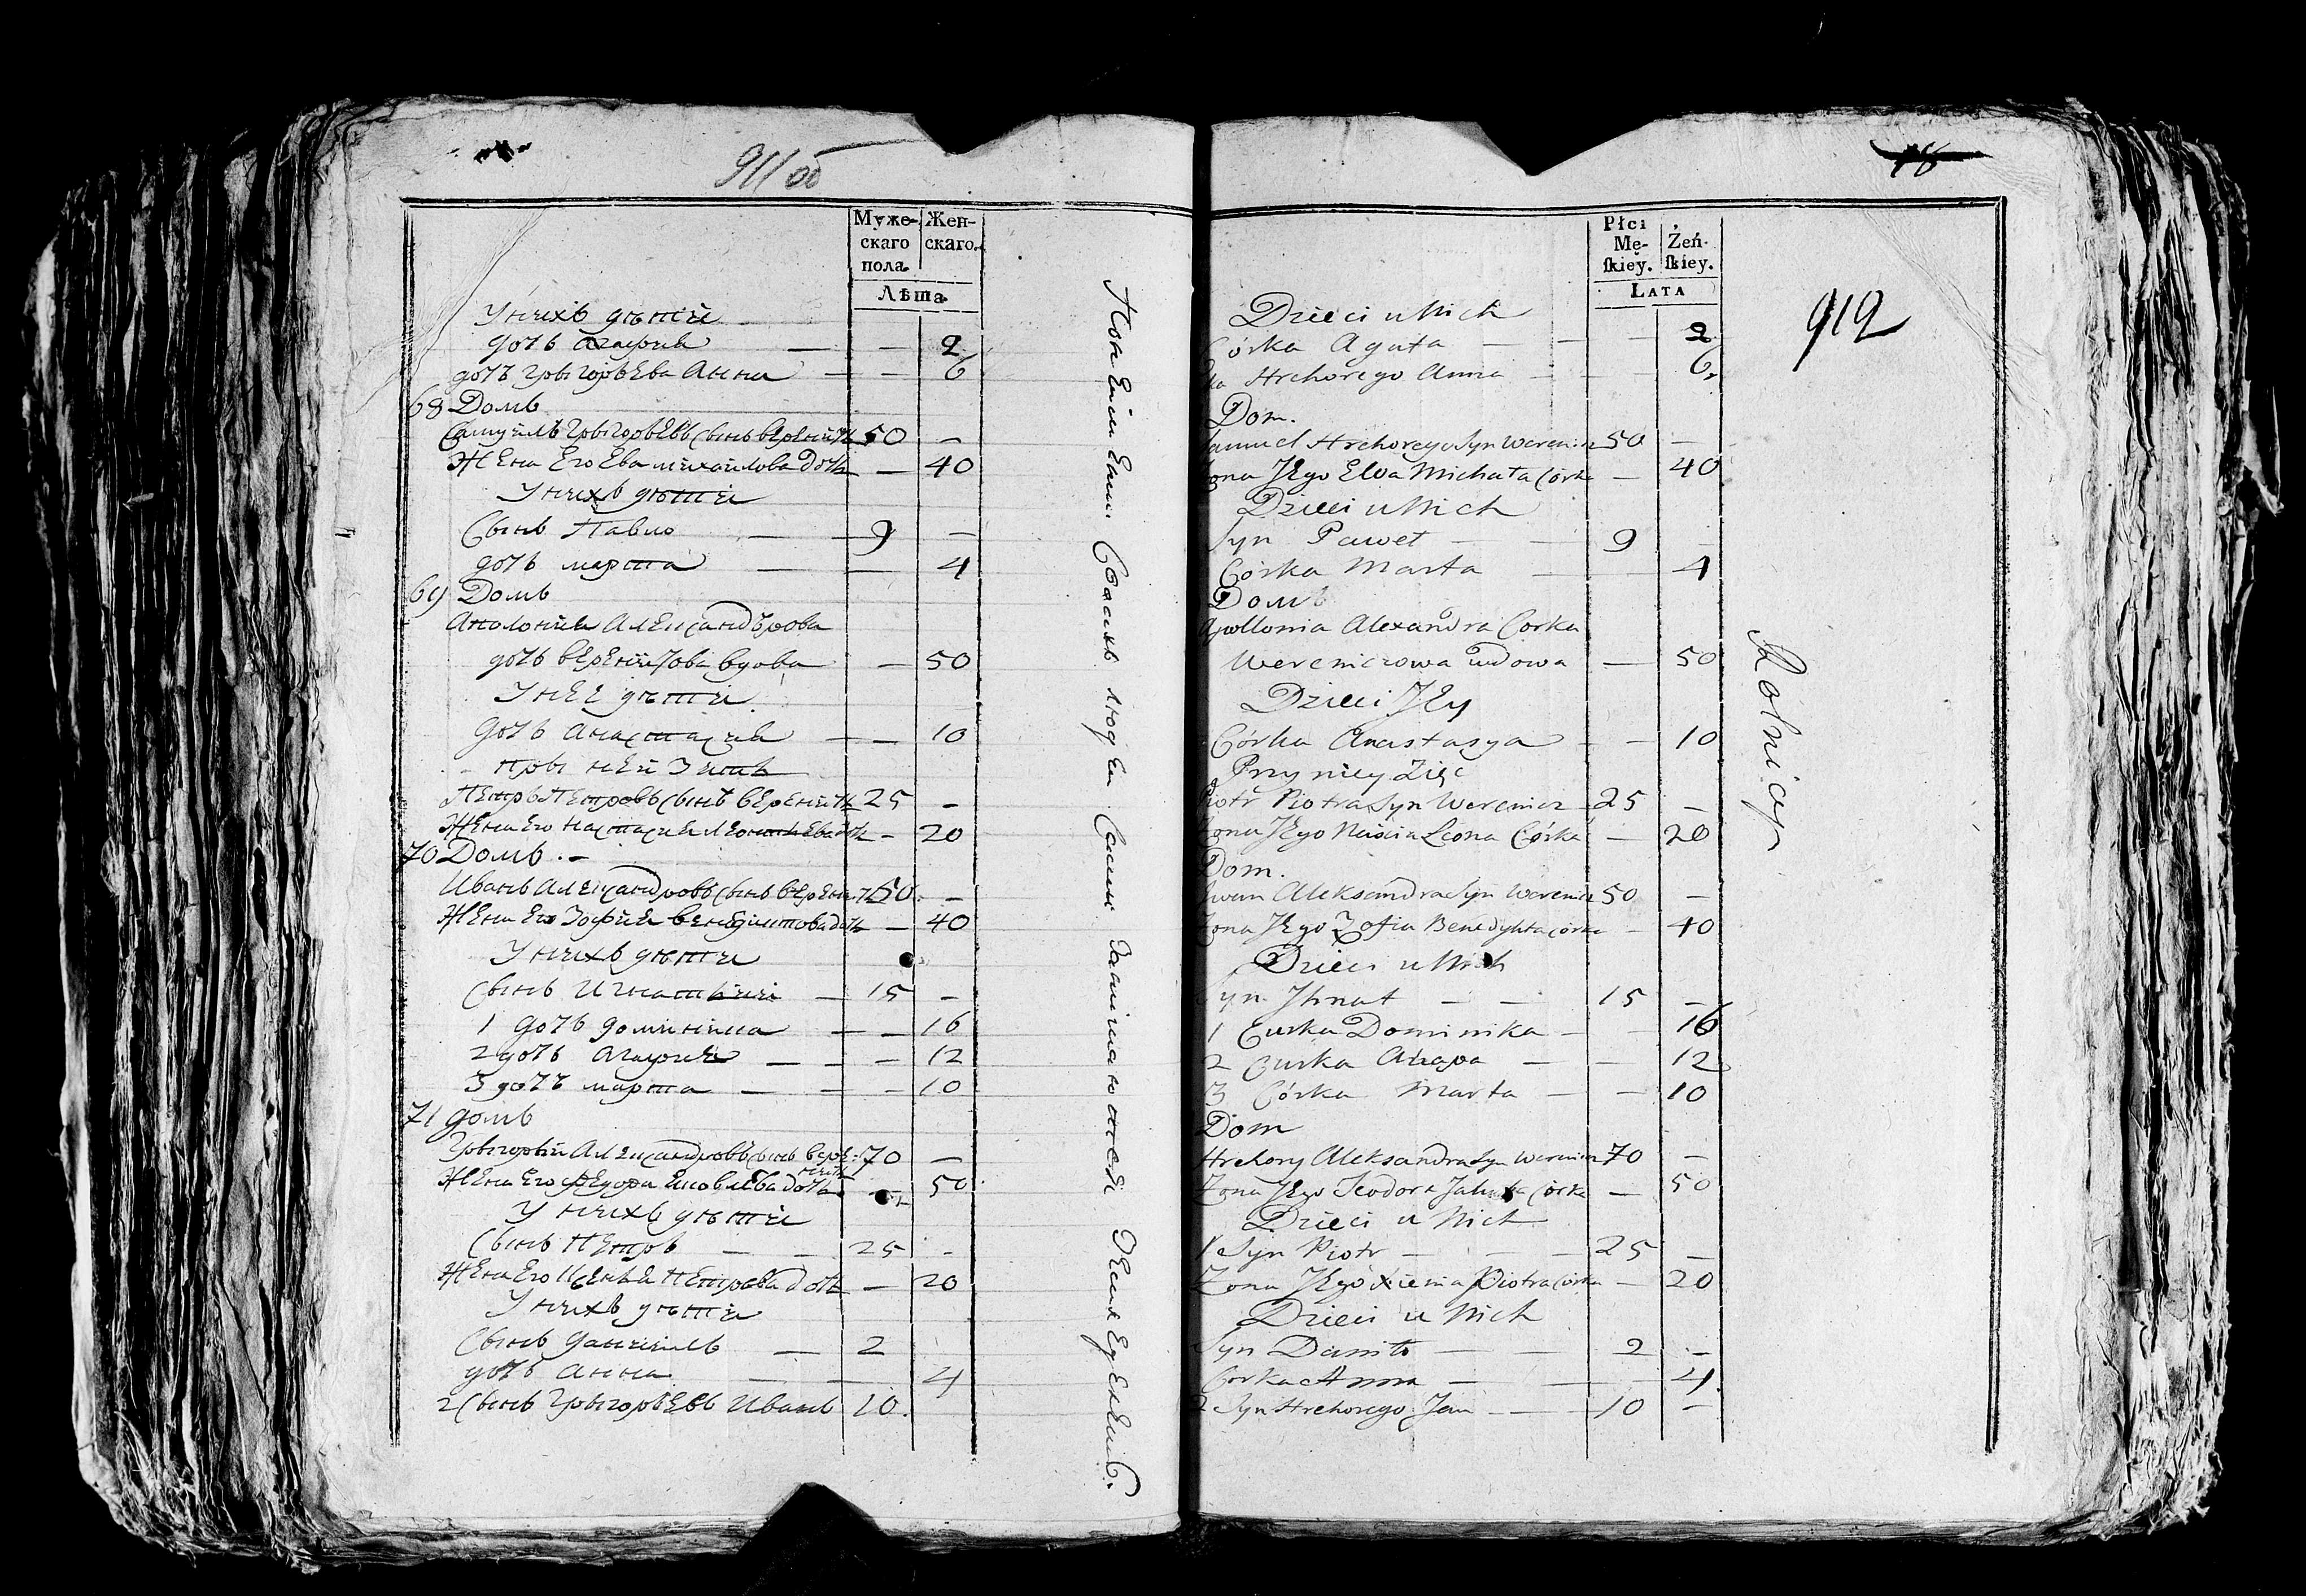 911 об
Муже-
скаго
пола.
Жен-
скаго.
Лѣта.
У нихъ дѣти
дочь Агафия — — 2
дочь Григорьева Анна — — 6
68 Домъ
Самуилъ Григорьевъ сынъ Веренич 50 —
Жена Его Ева Михайлова дочь — 40
У нихъ дѣти
Сынъ Павло — 9 —
дочь Марта — — 4
69 Домъ
Аполония Александрова
дочь Вереничова вдова — 50
У нее дѣти
дочь Анастасия — — 10
при ней Зять
Петръ Петровъ сынъ Веренич 25 —
Жена Его Настасия Леонтьева дочь — 20
70 Домъ. —
Иванъ Александровъ сынъ Веренич 50. —
Жена Его Зофия Бенедиктова дочь — 40
У нихъ дѣти
Сынъ Игнатий — 15 —
1 дочь Доминика — — 16
2 дочь Агафия — — 12
3 дочь Марта — — 10
71 домъ
Григорий Александровъ сынъ Вере- 70 —
нич
Жена Его Федора Яковлева дочь — 50
У нихъ дѣти
Сынъ Петръ — 25 -
Жена Его Ксения Петрова дочь — 20
У нихъ дѣти
Сынъ Даниилъ — 2
дочь Анна — — 4
2 Сынъ Григорьевъ Иванъ 10.
людей Сами
912
Płci
Mę-
skiey.
Żeń-
skiey.
LATA
Dzieci u Nich
Córka Agata — — 2
Hrehorego Anna — — 6
Dom.
Samuel Hrehorego Syn Werenicz 50 —
Zona Jego Ewa Michała Córka — 40
Dzieci u Nich
Syn Paweł — 9
Córka Marta — 4
Домъ
Apollonia Alexandra Corka
Wereniczowa wdowa — 50
Dzieci Jey
Córka Anastasya — — 10
Przy niey Zięć
Piotr Piotra Syn Werenicz 25 —
Zona Jego Naścia Leona Córka — 20
Dom.
Iwan Aleksandra Syn Werenicz 50 —
Zona Jego Zofia Benedykta córka — 40
Dzieci u Nich
Syn Jhnat — — 15 —
1 Curka Dominika — — 16
2 Curka Ahapa — — 12
3 Córka Marta — — 10
Dom
Hrehory Aleksandra Syn Werenicz 70 —
Zona Jego Teodora Jakuba córka — 50
Dzieci u Nich
1 Syn Piotr — — 25 —
Zona Jego Xienia Piotra córka — 20
Dzieci u Nich
Syn Daniło — — 2 —
Corka Anna — — 4
2 Syn Hrehorego Jan — 10 —
Rolnicy